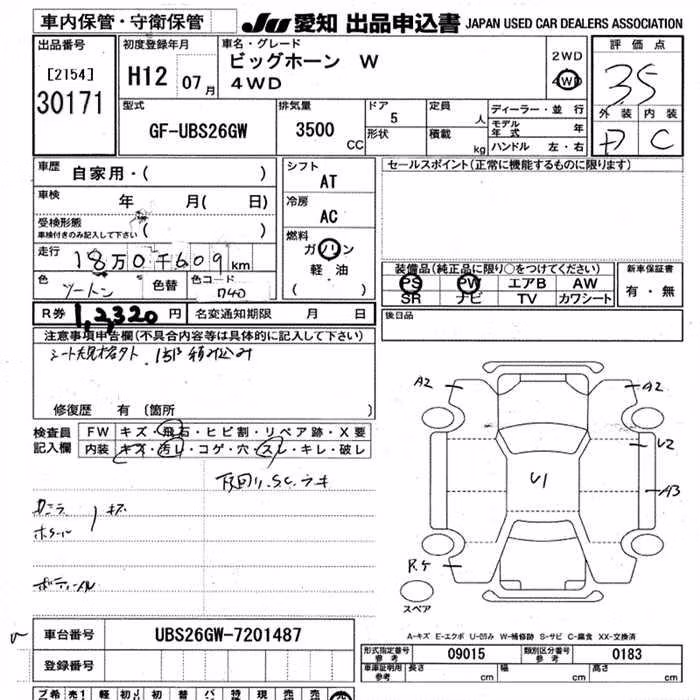 車内保管・守衛保管
JU 愛知 出品申込書 JAPAN USED CAR DEALERS ASSOCIATION
出品番号
[2154]
30171
初度登録年月
H12 07月
車名・グレード
ビッグホーン W
4WD
2WD
4WD
評価点
3.5
外装 内装
D C
型式
GF-UBS26GW
排気量
3500 CC
ドア
5
形状
定員
人
積載
kg
ディーラー・並行
モデル年式 年
ハンドル 左・右
車歴
自家用・( )
車検
年 月( 日)
受検形態
車検付きのみ記入して下さい
( )
走行
18万0千609km
色
ツートン
色替
色コード
D40
シフト
AT
冷房
AC
燃料
ガソリン
軽油
( )
セールスポイント(正常に機能するものに限ります)
装備品(純正品に限り○をつけてください)
PS PW エアB AW
SR ナビ TV カワシート
新車保証書
有・無
R券 12,320 円
名変通知期限 月 日
後日品
注意事項申告欄(不具合内容等は具体的に記入して下さい)
修復歴 有 〔箇所 〕
検査員記入欄
FW キズ・飛石・ヒビ割・リペア跡・X要
内装 キズ・汚レ・コゲ・穴・スレ・キレ・破レ
下回り.SC.ラキ
A2
A2
U2
U1
A3
R.S
スペア
A-キズ E-エクボ U-凹み W-補修跡 S-サビ C-腐食 XX-交換済
車台番号
UBS26GW-7201487
登録番号
形式指定番号 参考
09015
類別区分番号 参考
0183
車庫証明用 参考
長さ cm
幅 cm
高さ cm